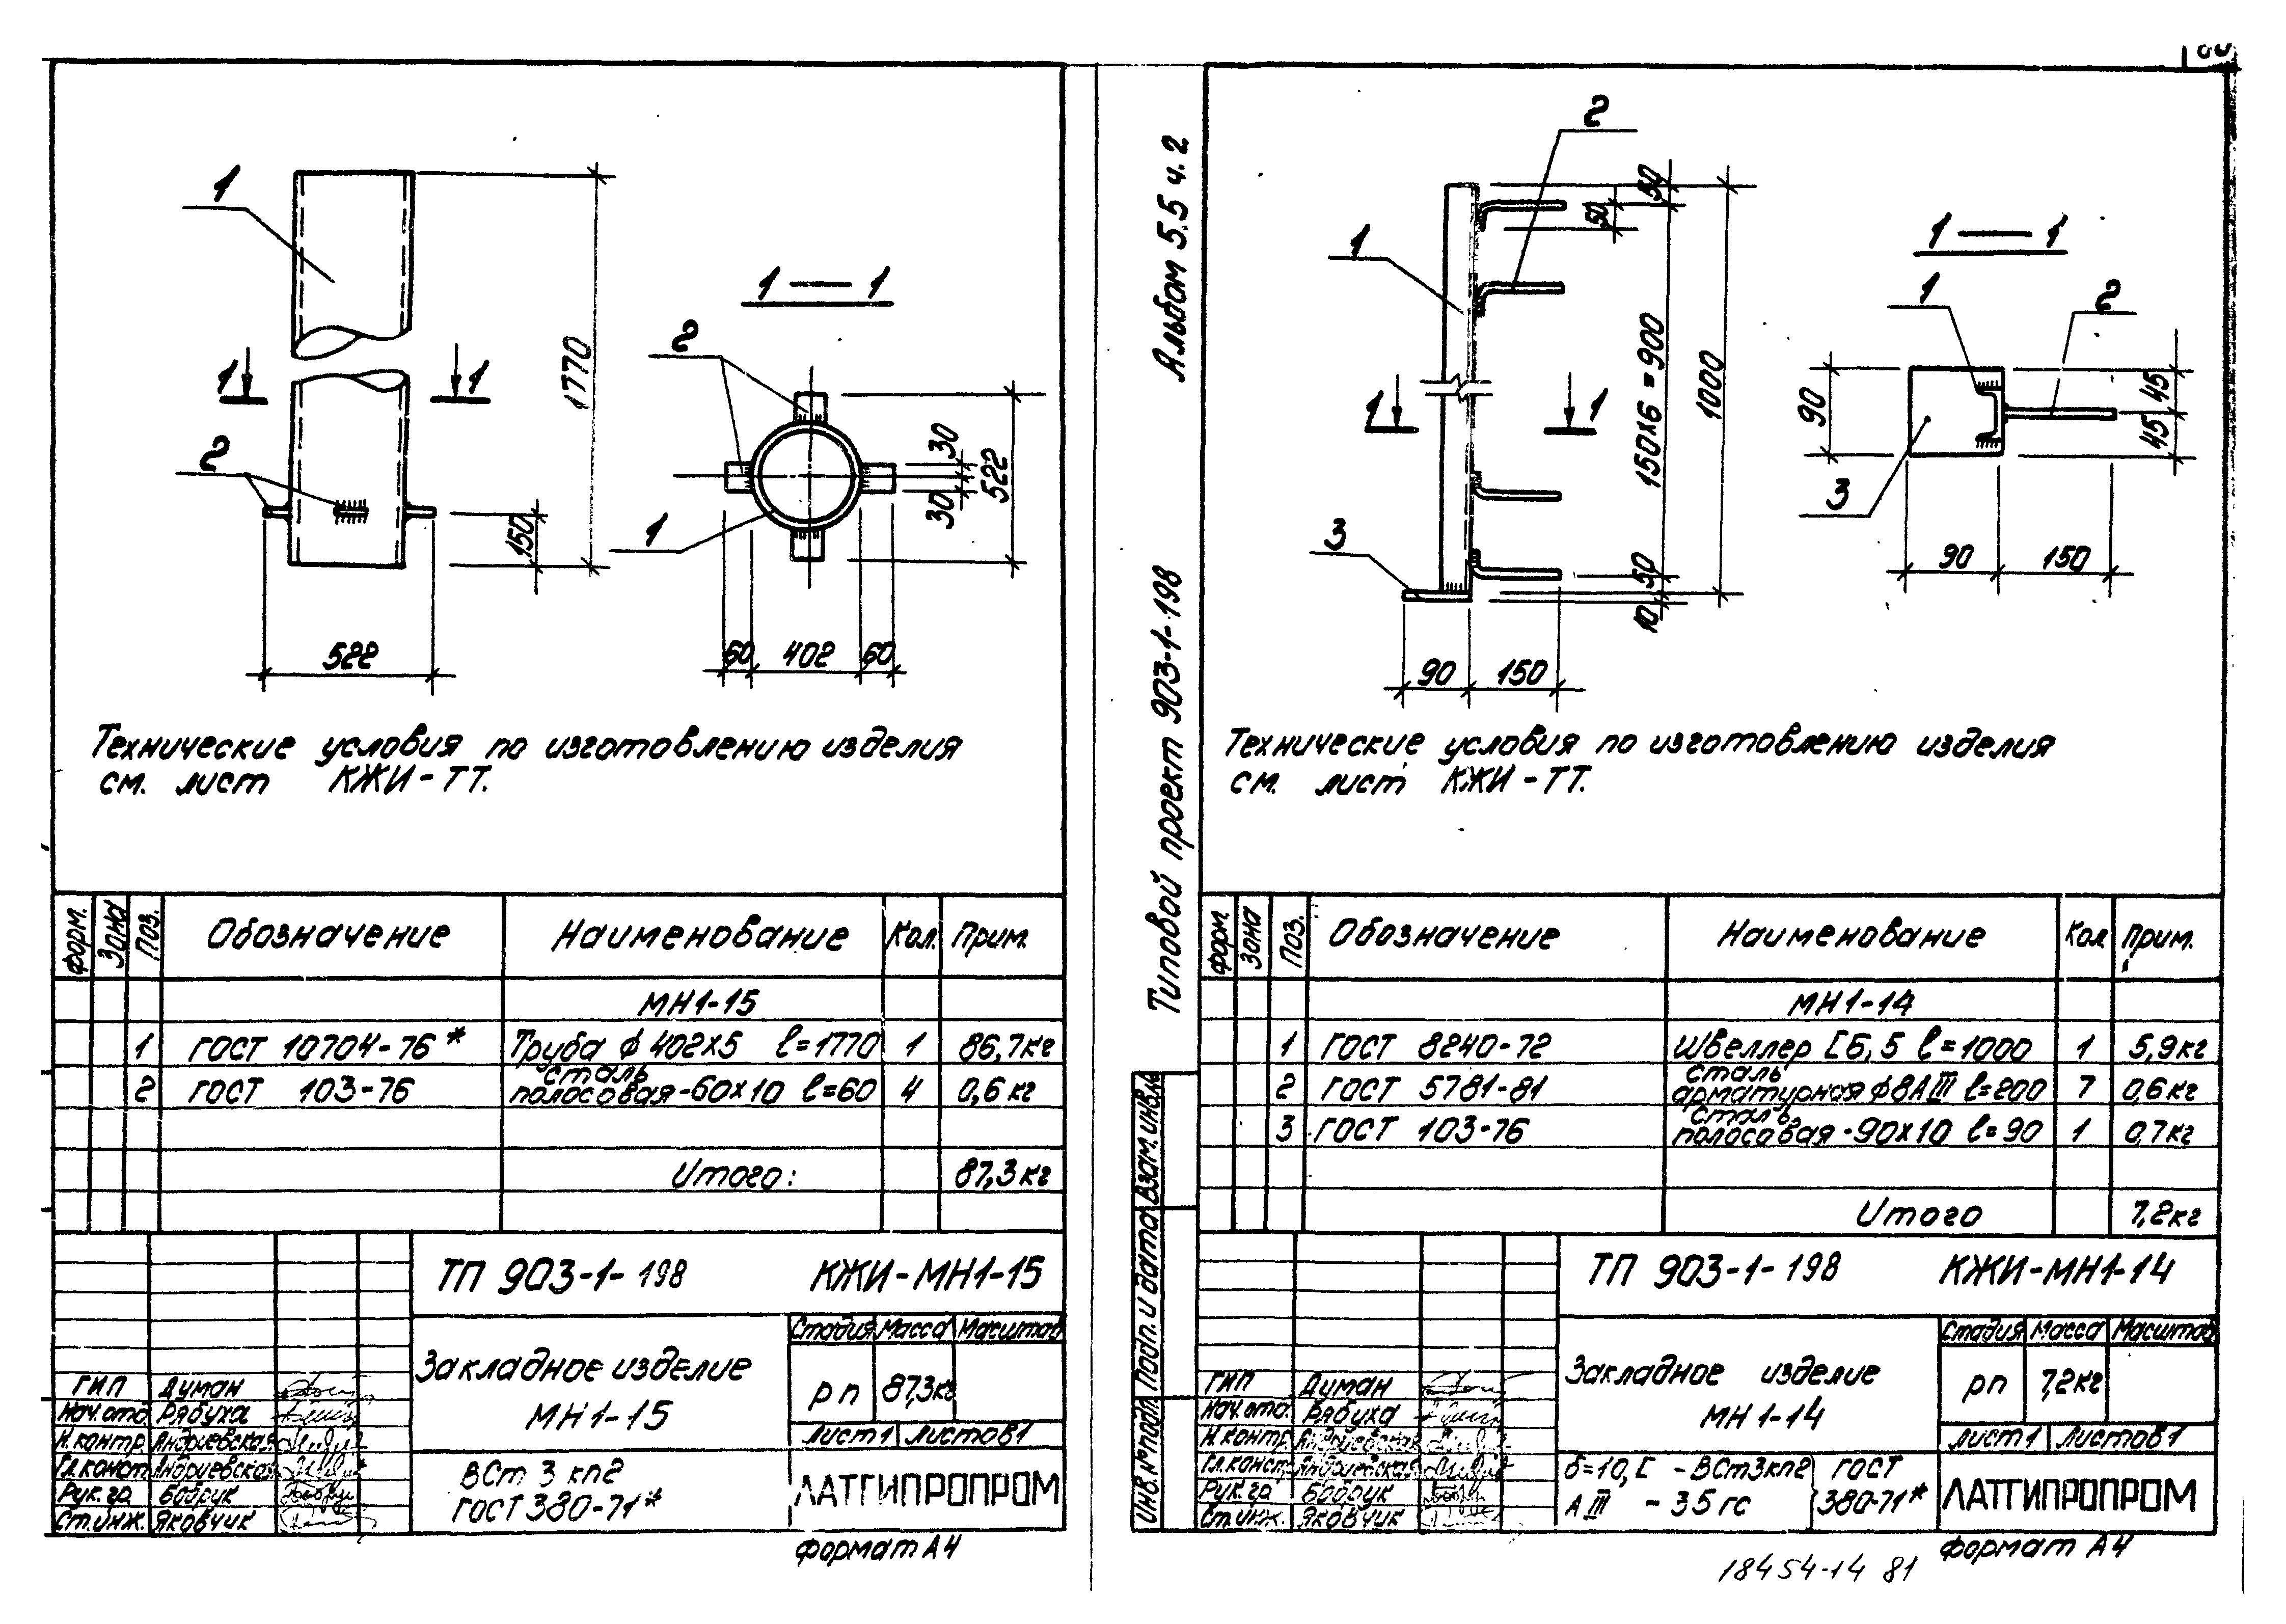 1
1 — 1
2
1
1
2
1
1770
150
522
30
30
522
60
402
60
Технические условия по изготовлению изделия
см. лист КЖИ-ТТ.
форм.
Зона
Поз.
Обозначение
Наименование
Кол.
Прим.
МН1-15
1 ГОСТ 10704-76* Труба ф 402х5 l=1770 1 86,7кг
2 ГОСТ 103-76 сталь полосовая -60х10 l=60 4 0,6кг
Итого: 87,3кг
ТП 903-1-198 КЖИ-МН1-15
Закладное изделие
МН1-15
Стадия Масса Масштаб
рп 87,3кг
Лист1 Листов1
ГИП Думан
Нач.отд. Рябуха
Н.контр. Андриевская
Гл.конст. Андриевская
Рук.гр. Бобрик
Ст.инж. Яковчик
ВСт 3 кп2
ГОСТ 380-71*
ЛАТГИПРОПРОМ
формат А4
Альбом 5.5 ч. 2
Типовой проект 903-1-198
Взам.инв.№
Подп. и дата
Инв.№подл.
2
1
1
1
3
50
50
150х6=900
1000
50
10
90
150
1 — 1
1
2
3
90
45
45
90
150
Технические условия по изготовлению изделия
см. лист КЖИ-ТТ.
форм.
Зона
Поз.
Обозначение
Наименование
Кол
Прим.
МН1-14
1 ГОСТ 8240-72 Швеллер [6,5 l=1000 1 5,9кг
2 ГОСТ 5781-81 сталь арматурная ф8АIII l=200 7 0,6кг
3 ГОСТ 103-76 сталь полосовая -90х10 l=90 1 0,7кг
Итого 7,2кг
ТП 903-1-198 КЖИ-МН1-14
Закладное изделие
МН1-14
Стадия Масса Масштаб
рп 7,2кг
Лист1 Листов1
ГИП Думан
Нач.отд. Рябуха
Н.контр. Андриевская
Гл.конст. Андриевская
Рук.гр. Бобрик
Ст.инж. Яковчик
δ=10, [ - ВСт3кп2 } ГОСТ
АIII - 35гс } 380-71*
ЛАТГИПРОПРОМ
формат А4
18454-14 81